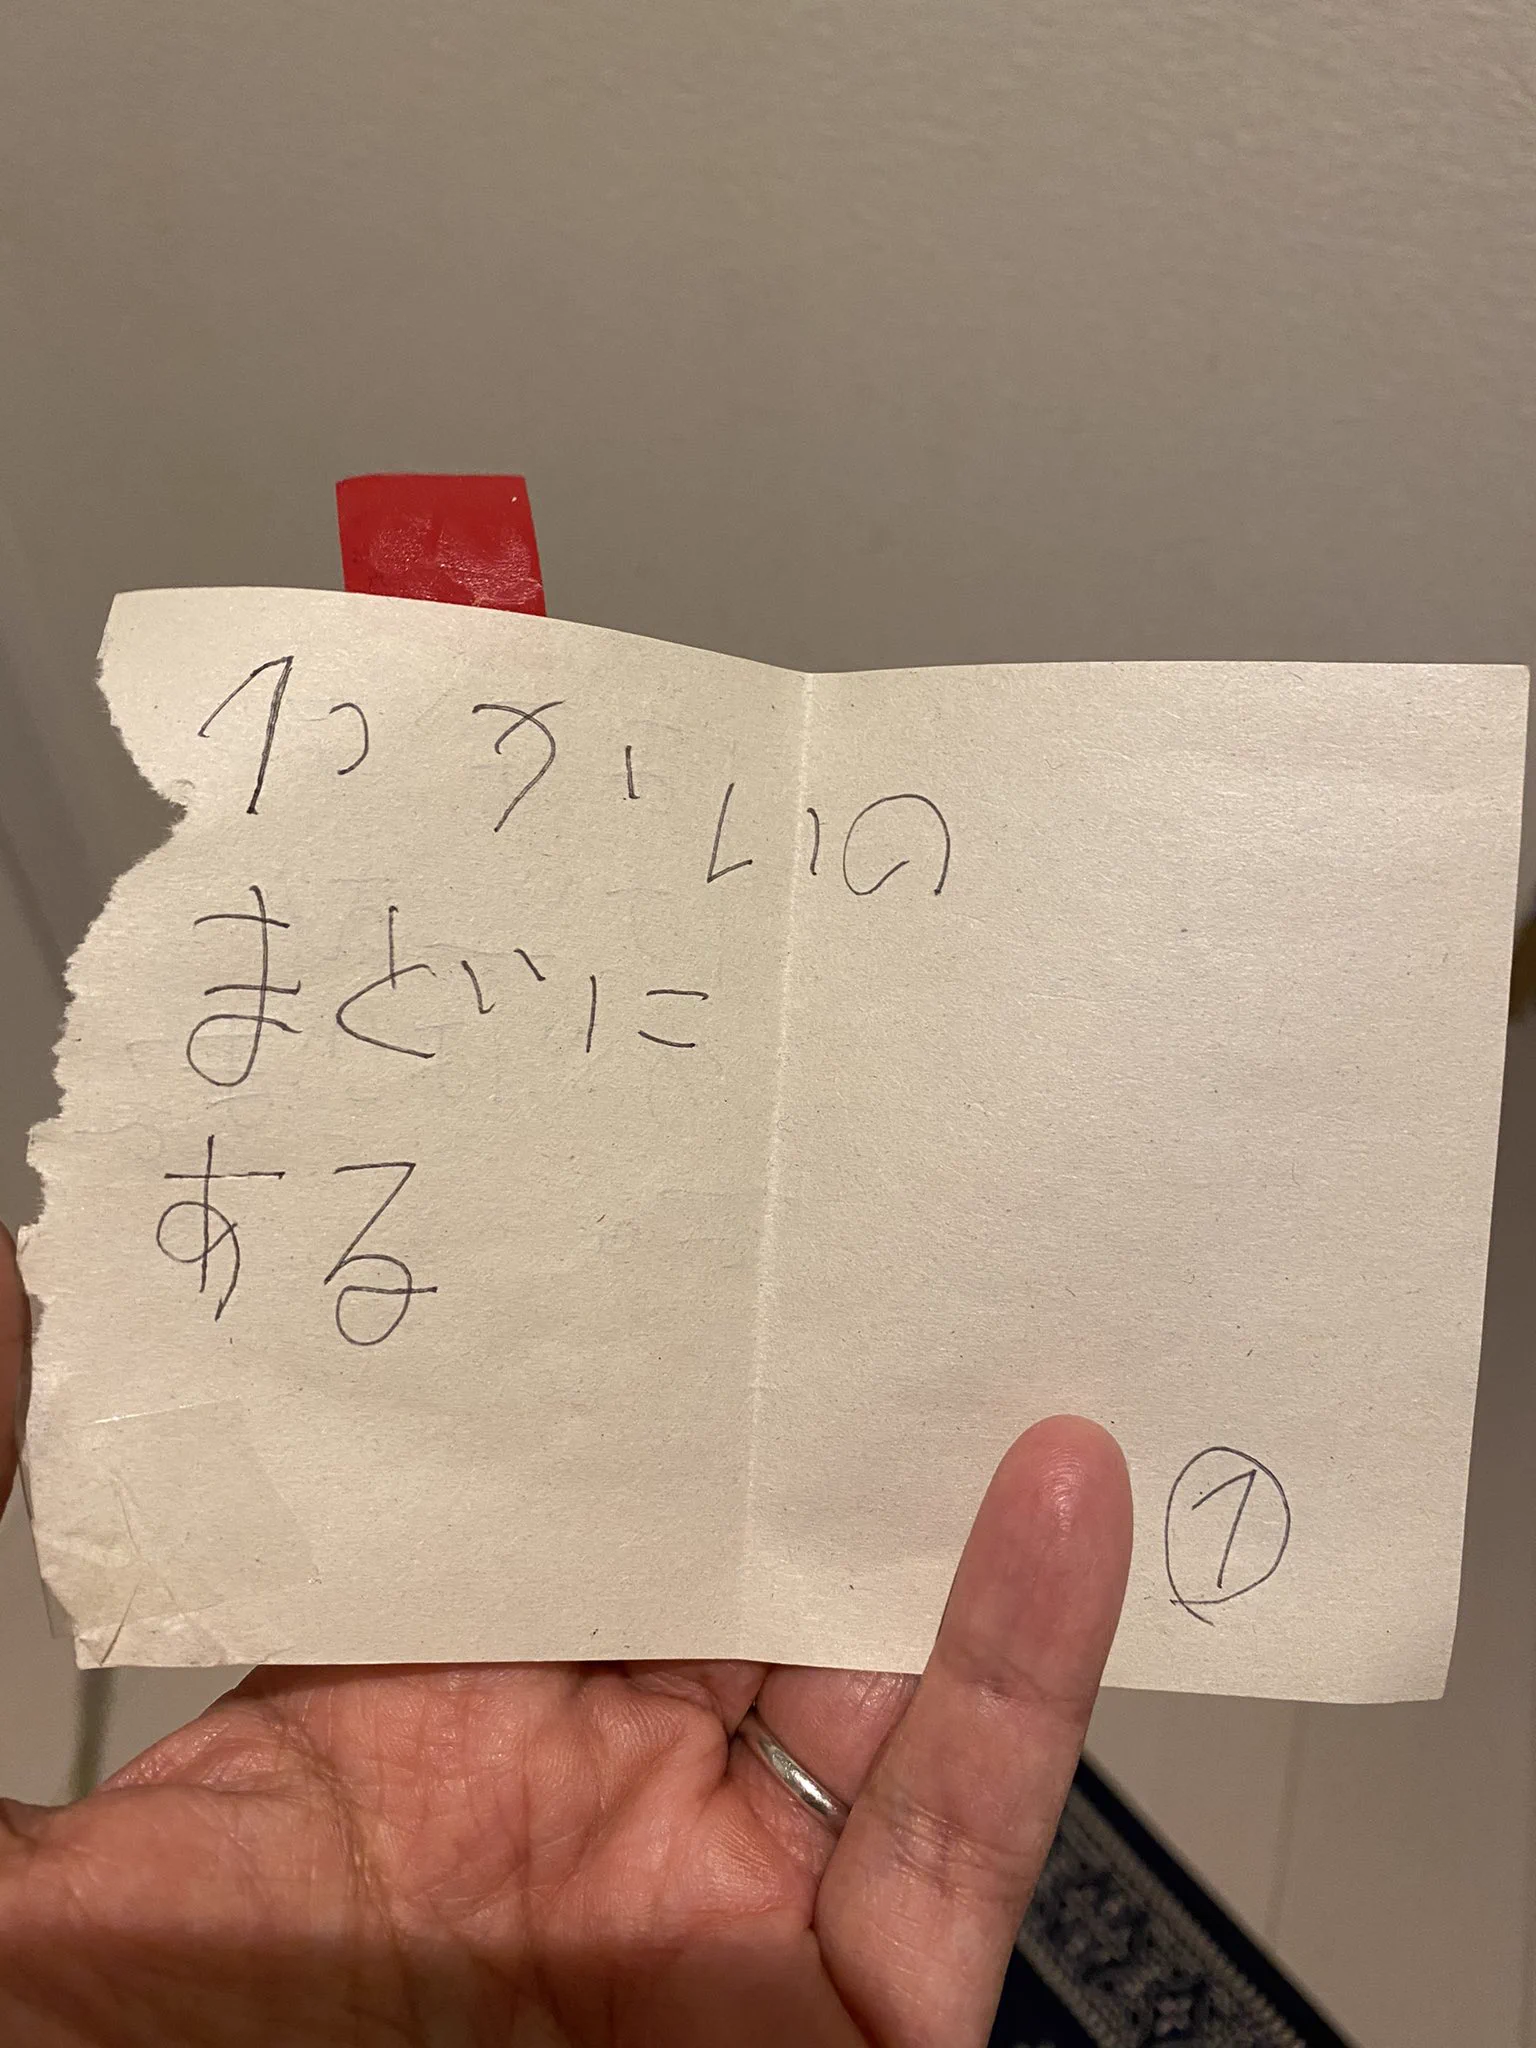 1つ かいの
まどに
ある
①